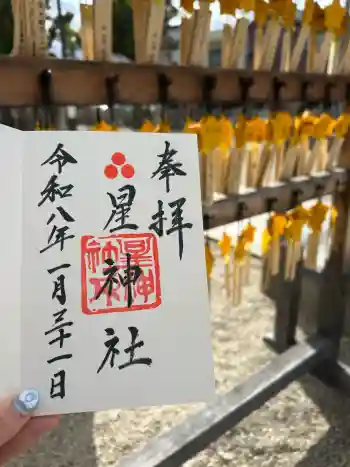 奉拝
星神社
令和八年一月三十一日